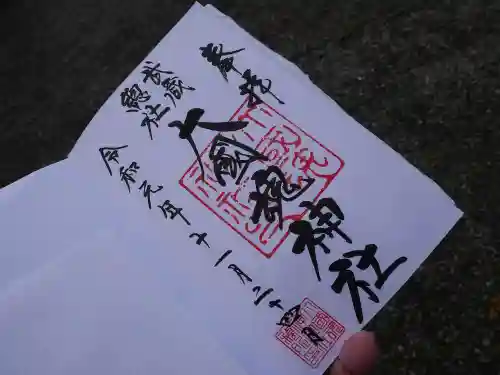 奉拝
武蔵
總社
大國魂神社
令和元年十一月二十四日